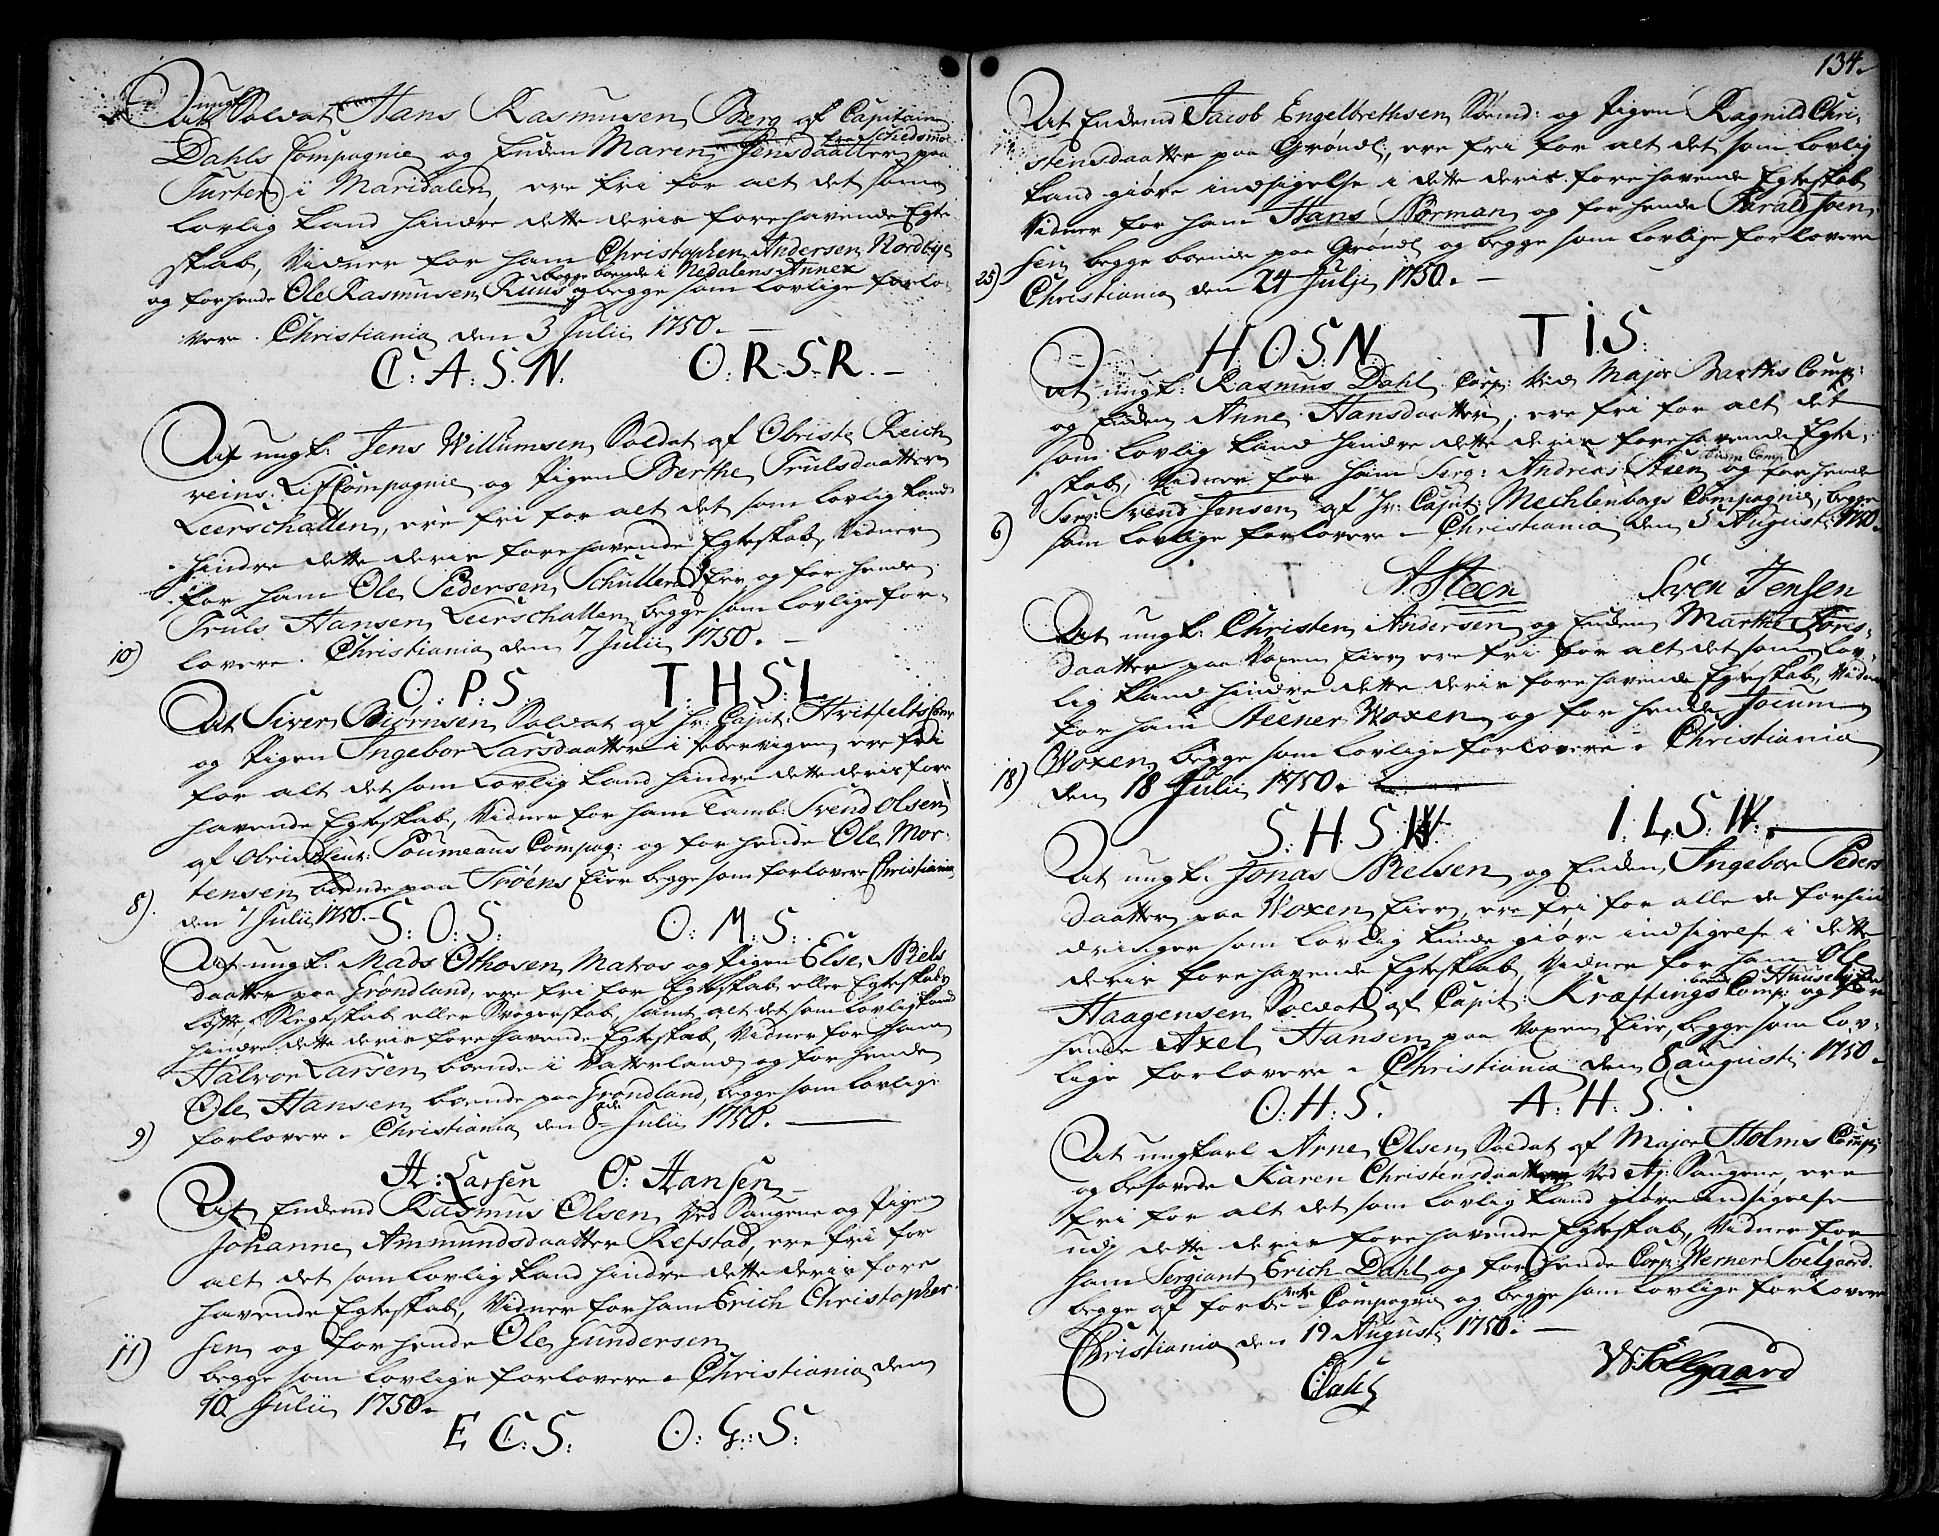 At ungk: Soldat Hans Rasmusen Berg af Capitain
Dahls Compagnie og Enken Maren Jensdaatter fra Schedsmo paa
Turter i Maridalen, ere fri for alt det som
lovlig kand hindre dette deris forehavende Egte-
skab, Vidner for ham Christophen Andersen Nordbye
og for hende Ole Rasmusen Ruus begge boende i Nedalens Annex og begge som lovlige forlo-
vere. Christiania den 3 Julii 1750.
C: A: S: N. O: R: S: R.
At ungk: Jens Willumsen Soldat af Obriste Reich
reins Lif Compagnie og Pigen Berthe Trulsdaatter
Leerschallen, ere fri for alt det som lovlig kand
hindre dette deris forehavende Egteskab, Vidner
for ham Ole Pedersen Schullerud Eier og for hende
Truls Hansen Leerschallen begge som lovlige for-
10) lovere. Christiania den 7 Julii 1750.
O: P: S. T: H: S: L
At Siver Biørnsen Soldat af Hr: Capit: Hvitfelts Comp
og Pigen Ingebor Larsdaatter i Pebervigen, ere fri
for alt det som lovlig kand hindre dette deris fore
havende Egteskab, Vidner for ham Tamb: Svend Olsen
af Obristleut: Poumeaus Compag: og for hende Ole Mor-
tensen boende paa Trøens Eier begge som forlovere Christiania
8) den 7 Julii 1750.
S: O: S: O: M: S:
At ungk: Mads Othosen Matros og Pigen Else Niels
daatter paa Grøndland, ere fri for Egteskab eller Egteskabs
Løfte, Slegtskab eller Svogerskab, samt alt det som lovlig kand
hindre dette deris forehavende Egteskab, Vidner for ham
Halvor Larsen boende i Vatterland og for hende
Ole Hansen boende paa Grøndland, begge som lovlige
9) forlovere. Christiania den 8de Julii 1750.
H: Larsen O: Hansen
At Enkemd Rasmus Olsen Ved Saugene og Pigen
Johanne Ammundsdaatter Refstad, ere fri for
alt det som lovlig kand hindre dette deris fore
havende Egteskab, Vidner for ham Erich Christopher-
sen og for hende Ole Gundersen
11) begge som lovlige forlovere. Christiania den
10 Julii 1750.
E C: S: O: G: S:
134.
At Enkemd Jacob Engelbrethsen Sørend: og Pigen Ragnild Chri-
stensdaatter paa Grøndl:, ere fri for alt det som lovlig
kand giøre indsigelse i dette deris forehavende Egteskab
Vidner for ham Hans Norman og for hende Tarald Joen-
sen begge boende paa Grøndl: og begge som lovlige forlovere
25) Christiania den 24 Julji 1750.
H. O: S: N. T I: S:
At ungk: Rasmus Dahl Corp: Ved Major Barths Comp:
og Enken Anne Hansdaatter, ere fri for alt det
som lovlig kand hindre dette deris forehavende Egte-
skab, Vidner for ham Serg: Andreas Steen samme Comp og for hende
Serg: Svend Jensen af Hr: Capit: Mechlenborgs Compagnie, begge
6) som lovlige forlovere. Christiania den 5 August: 1750.
A Steen Sven Jensen
At ungk: Christen Andersen og Enken Marthe Tores-
daatter paa Voxen Eier ere fri for alt det som lov-
lig kand hindre dette deris forehavende Egteskab, Vidner
for ham Steener Woxen og for hende Joeum
Woxen begge som lovlige forlovere. Christiania
18) den 18 Julii 1750.
S: H: S: W. I: L: S: W.
At ungk: Jonas Nielsen og Enken Ingebor Peders
daatter paa Woxen Eier, ere fri for alle de forhin
dringer som lovlig kunde giøre indsigelse i dette
deris forehavende Egteskab, Vidner for ham Ole
Haagensen Soldat af Capit: Kræftings Comp: og for
hende Axel Hansen paa Voxen Eier, begge som lov-
lige forlovere. Christiania den 8 augusti 1750.
O: H: S. A: H: S.
At ungkarl Arne Olsen Soldat af Major Holms Comp:
og besovede Karen Christensdaatter Ved Ag: Saugene, ere
fri for alt det som lovlig kand giøre indsigelse
udj dette deris forehavende Egteskab, Vidner for
ham Sergiant Erich Dahl og for hende Corp: Werner Soelgaard.
begge af forbemte Compagnie og begge som lovlige forlovere
Christiania den 19 Augusti 1750.
EDahl W:Sollgaard